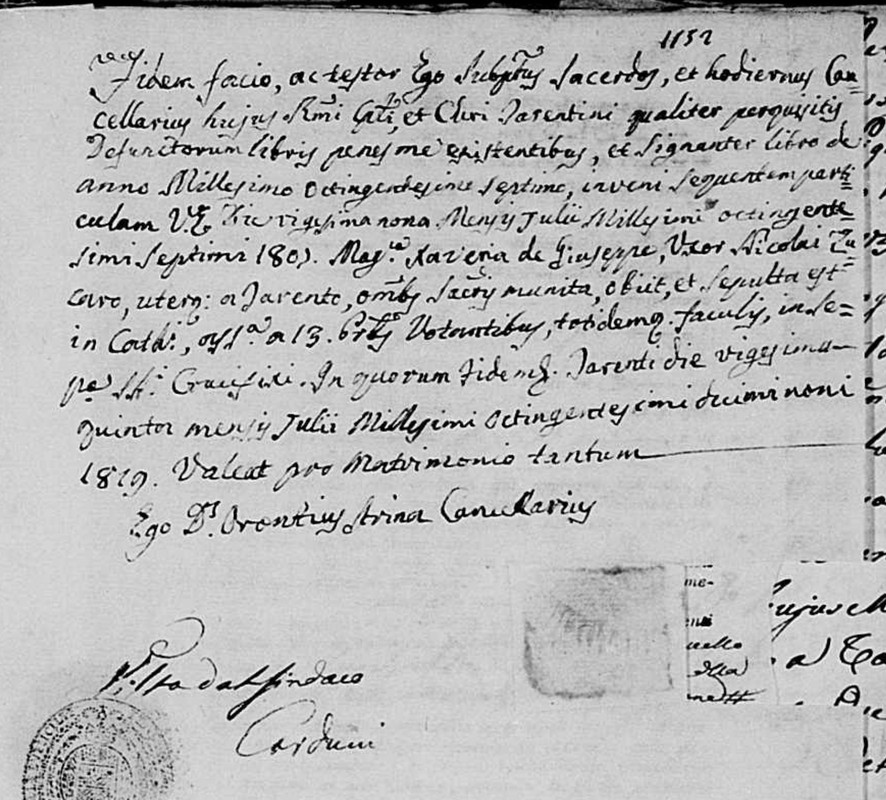 1152
Fidem facio, ac testor Ego Subptus Sacerdos, et hodiernus Can=
cellarius hujus Rmi Cpli, et Cleri Tarentini qualiter perquisitis
Defunctorum libris penes me existentibus, et signanter libro de
anno Millesimo Octingentesimo septimo, inveni sequentem parti=
culam Vz. Die vigesima nona Mensis Julii Millesimi octingente=
simi septimi 1807. Mag.ca Xaveria de Giuseppe, Uxor Nicolai Zu=
caro, uterq: a Tarento, omibs Sacris munita, obiit, et sepulta est
in Cath:, a 13. Prbis Votantibus, totidemq. faculis, in se=
pa SS. Crucifixi. In quorum fidem. Tarenti die vigesima
quinta mensis Julii Millesimi Octingentescimi decimi noni
1819. Valeat pro Matrimonio tantum
Ego D. Orontius Strina Cancellarius
me-
uello
della
ujus
a
Vista dal Sindaco
Carduni